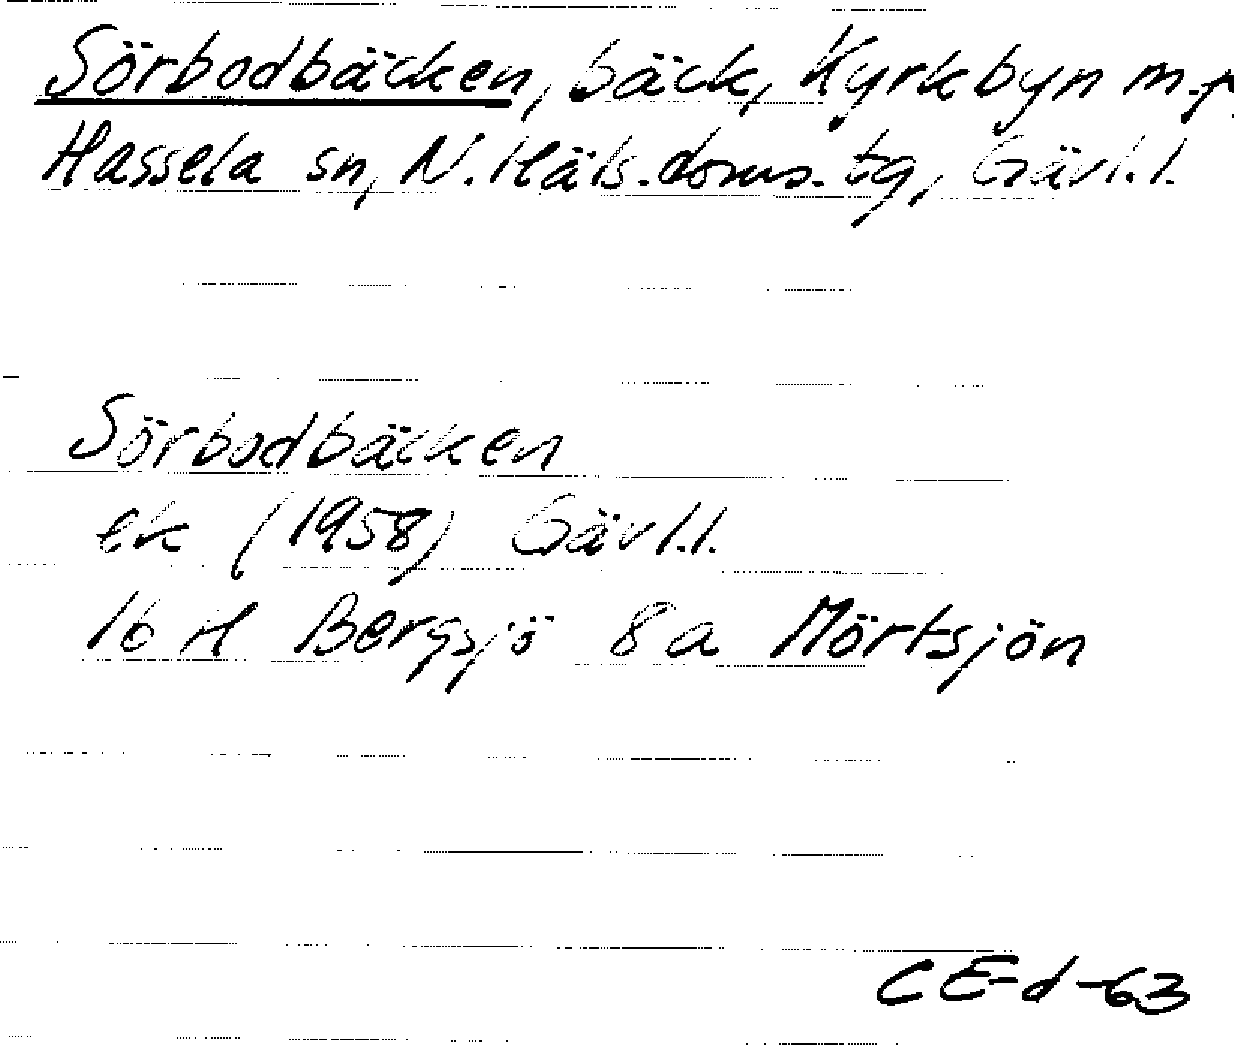 Sörbodbäcken, bäck, Kyrkbyn m.fl.
Hassela sn, N. Häls. doms. tg, Gävl.l.
Sörbodbäcken
ek (1958) Gävl.l.
16 H Bergsjö 8a Mörtsjön
CE-d-63